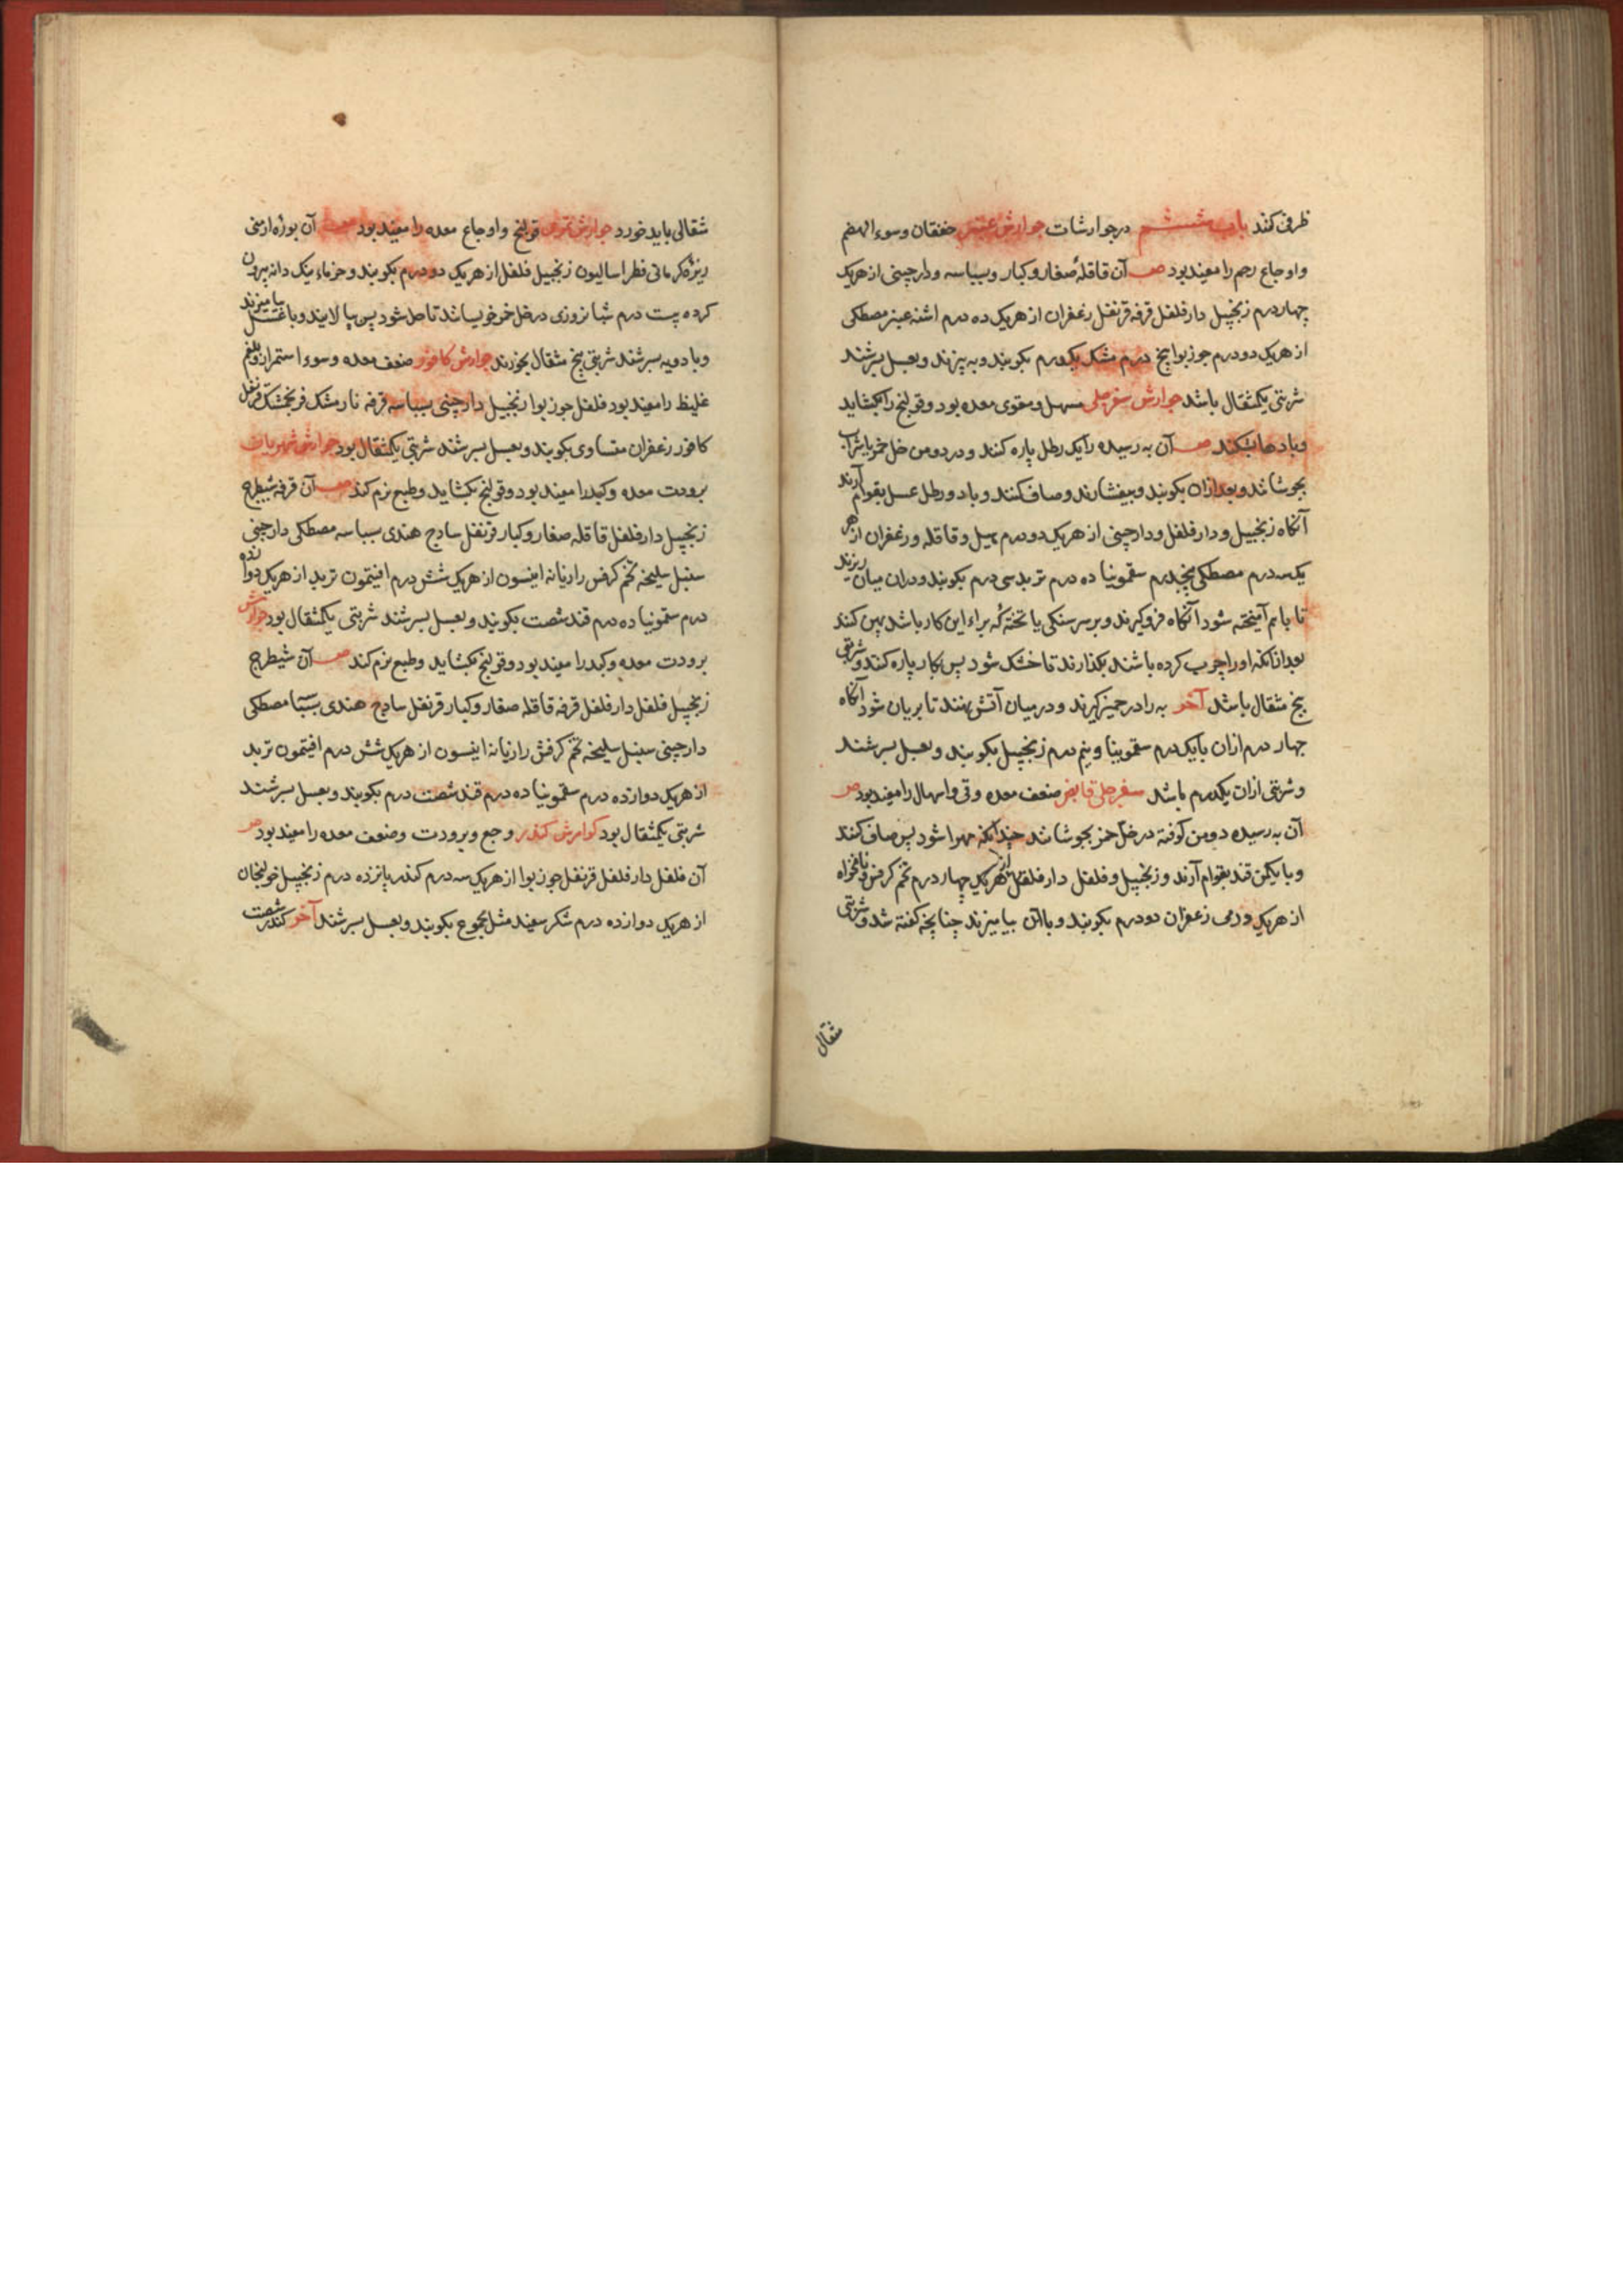 ظرفی کنند باب ششم در جوارشات جوارش عنبر خفقان و سوء الهضم
و اوجاع رحم را مفید بود صـ آن قاقله صغار و کبار و بسباسه و دارچینی از هریک
چهار درم زنجبیل دارفلفل قرفه قرنفل زعفران از هریک ده درم اشنه عنبر مصطکی
از هریک دو درم جوزبوا پنج درم مشک یکدرم بکوبند و به پزند و بعسل بسرشند
شربتی یکمثقال باشد جوارش سفرجلی مسهل و مقوی معده بود و قولنج را بکشاید
و بادها بشکند صـ آن به رسیده را یک رطل پاره کنند و در دو من خل خمر یا شراب
بجوشانند و بعد ازان بکوبند و بیفشارند و صاف کنند و با دو رطل عسل بقوام آرند
آنکاه زنجبیل و دارفلفل و دارچینی از هریک دو درم هیل و قاقله و زعفران از هر
یک سه درم مصطکی پنجدرم سقمونیا ده درم تربد سی درم بکوبند و دران میان ریزند
تا باهم آمیخته شود آنکاه فروکیرند و بر سر سنکی یا تخته که براء این کار باشد پهن کنند
بعد ازانکه او را چرب کرده باشند بکذارند تا خشک شود پس بکار پاره کنند و شربتی
پنج مثقال باشد آخر به را در خمیر کیرند و در میان آتش نهند تا بریان شود آنکاه
چهار درم ازان با یکدرم سقمونیا و نیم درم زنجبیل بکوبند و بعسل بسرشند
و شربتی ازان یکدرم باشد سفرجلی قابض ضعف معده و قی و اسهال را مفید بود صـ
آن به رسیده دو من کوفته در خل خمر بجوشانند چندانکه مهرا شود پس صاف کنند
و با یکمن قند بقوام آرند و زنجبیل و فلفل دارفلفل از هریک چهار درم تخم کرفس و نانخواه
از هریک درمی زعفران دو درم بکوبند و با آن بیامیزند چنانچه کفته شد و شربتی
مثقال
مثقالی باید خورد جوارش تمری قولنج و اوجاع معده را مفید بود صـ آن بوره ارمنی
زیره کرمانی فطراسالیون زنجبیل فلفل از هریک دو درم بکوبند و خرماء نیک دانه بیرون
کرده بیست درم شبانروزی در خل خمر خویسانند تا حل شود پس بپالایند و با عسل بیامیزند
و بادویه بسرشند شربتی پنج مثقال بخورند جوارش کافور ضعف معده و سوء استمراء و بلغم
غلیظ را مفید بود فلفل جوزبوا زنجبیل دارچینی بسباسه قرفه نارمشک فرنجمشک قرنفل
کافور زعفران متساوی بکوبند و بعسل بسرشند شربتی یکمثقال بود جوارش شهریاران
برودت معده و کبد را مفید بود و قولنج بکشاید و طبع نرم کند صـ آن قرفه شیطرج
زنجبیل دارفلفل قاقله صغار و کبار قرنفل سادج هندی بسباسه مصطکی دارچینی
سنبل سلیخه تخم کرفس رازیانه انیسون از هریک شش درم افتیمون تربد از هریک دوازده
درم سقمونیا ده درم قند شصت بکوبند و بعسل بسرشند شربتی یکمثقال بود جوارش
برودت معده و کبد را مفید بود و قولنج بکشاید و طبع نرم کند صـ آن شیطرج
زنجبیل فلفل دارفلفل قرفه قاقله صغار و کبار قرنفل سادج هندی بسباسه مصطکی
دارچینی سنبل سلیخه تخم کرفس رازیانه انیسون از هریک شش درم افتیمون تربد
از هریک دوازده درم سقمونیا ده درم قند شصت درم بکوبند و بعسل بسرشند
شربتی یکمثقال بود کوارش کندر وجع و برودت و ضعف معده را مفید بود صـ
آن فلفل دارفلفل قرنفل جوزبوا از هریک سه درم کندر پانزده درم زنجبیل خولنجان
از هریک دوازده درم شکر سفید مثل مجموع بکوبند و بعسل بسرشند آخر کندر شصت